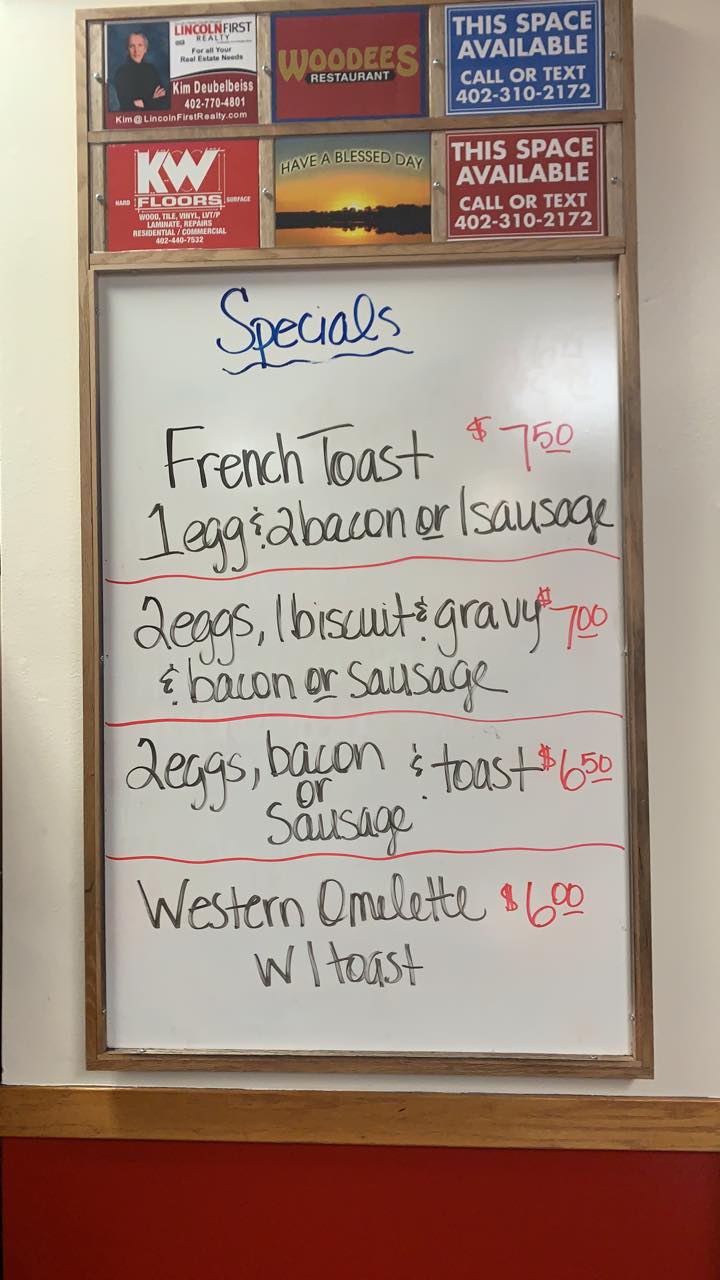 LINCOLNFIRST
REALTY
For all Your
Real Estate Needs
Kim Deubelbeiss
402-770-4801
Kim@LincolnFirstRealty.com
WOODEES
RESTAURANT
THIS SPACE
AVAILABLE
CALL OR TEXT
402-310-2172
KW
HARD FLOORS SURFACE
WOOD, TILE, VINYL, LVT/P
LAMINATE, REPAIRS
RESIDENTIAL / COMMERCIAL
402-440-7532
HAVE A BLESSED DAY
THIS SPACE
AVAILABLE
CALL OR TEXT
402-310-2172
Specials
French Toast $7.50
1egg & 2bacon or 1sausage
2eggs, 1biscuit & gravy $7.00
& bacon or sausage
2eggs, bacon & toast $6.50
or
Sausage
Western Omelette $6.00
W/toast